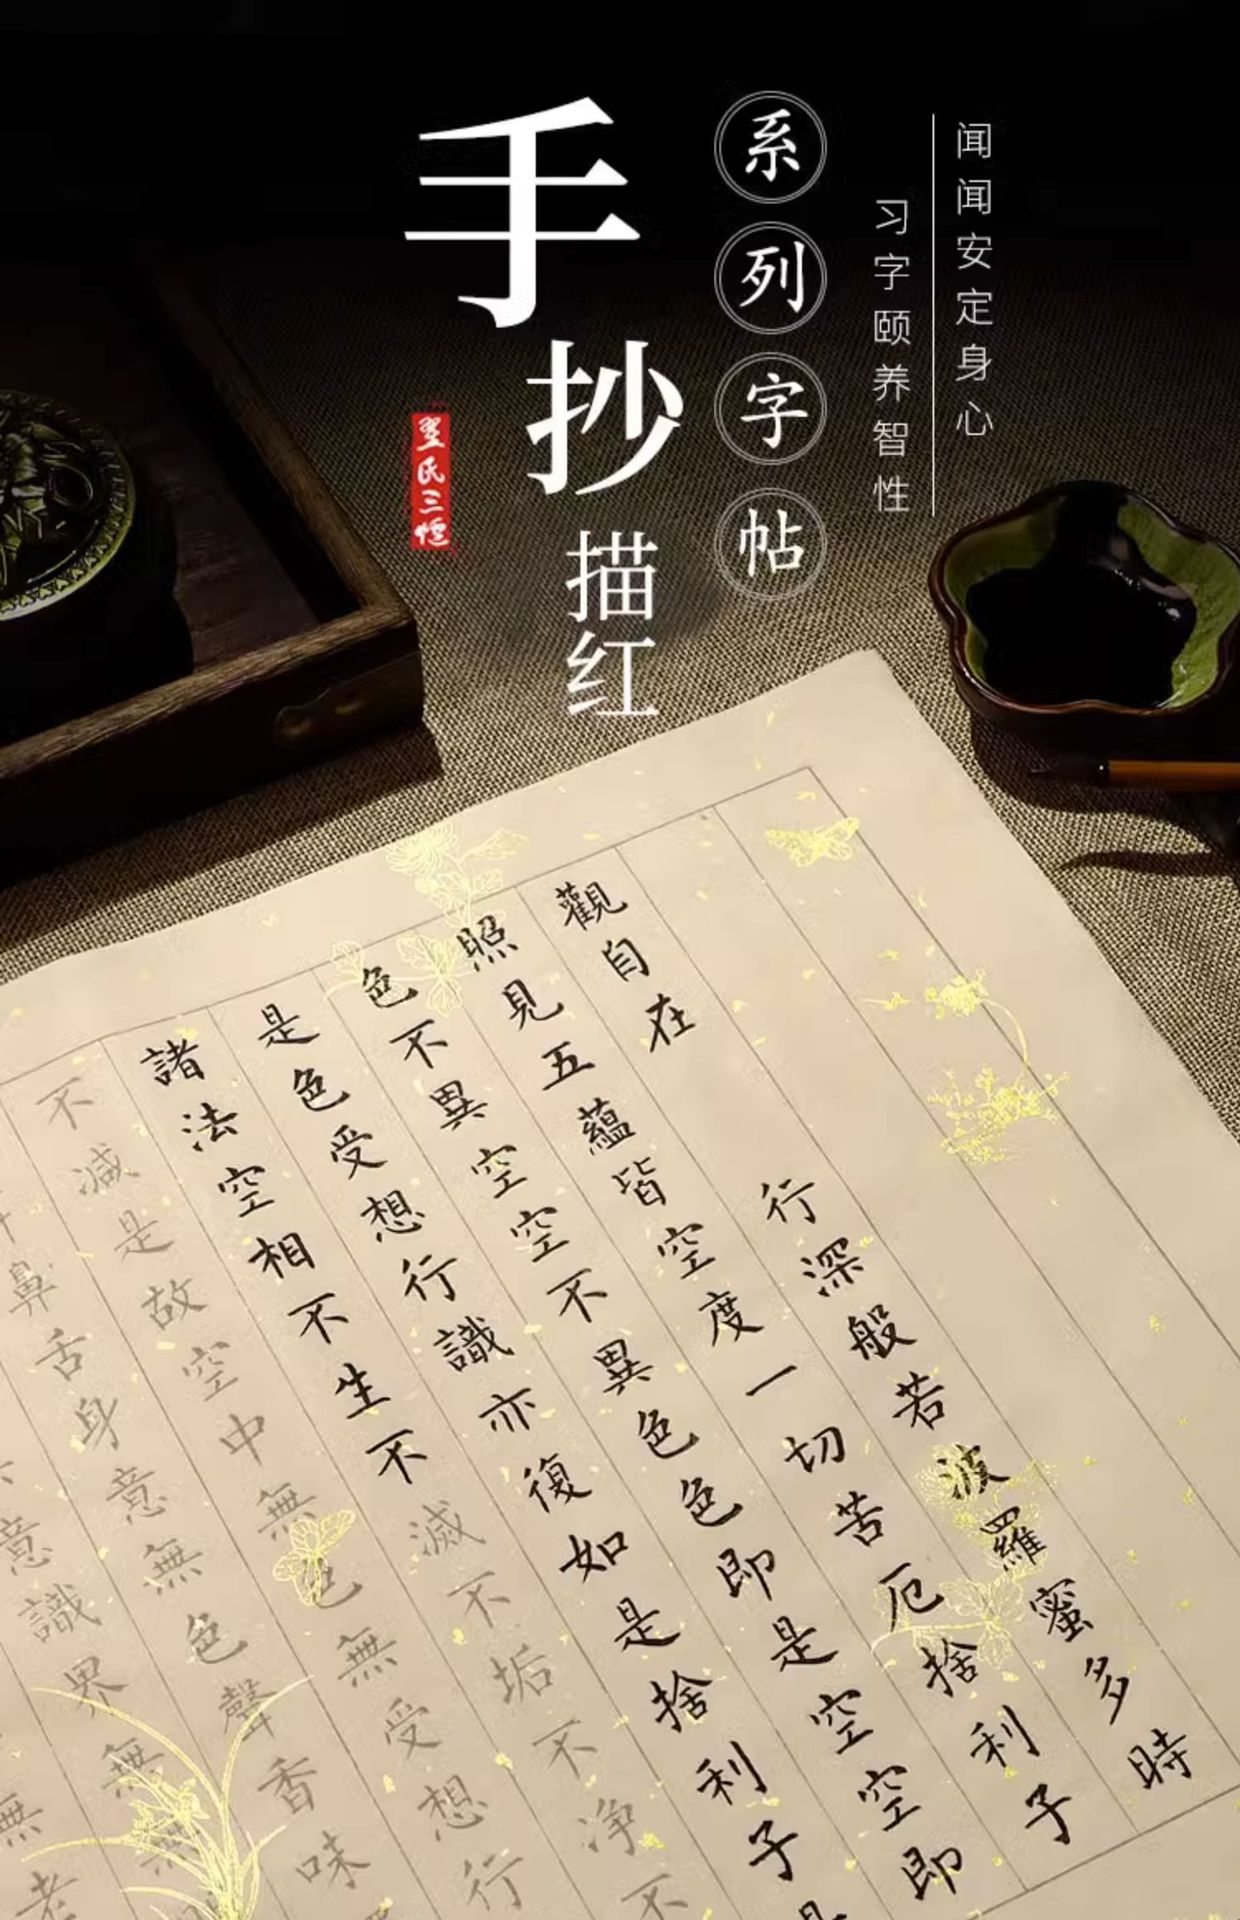 闻闻安定身心
习字颐养智性
系列字帖
手抄
描红
觀自在 行深般若波羅蜜多時
照見五蘊皆空度一切苦厄捨利子
色不異空空不異色色即是空空即
是色受想行識亦復如是捨利子是
諸法空相不生不滅不垢不净不
減是故空中無色無受想行
鼻舌身意無色聲香味
意識界無無
無老